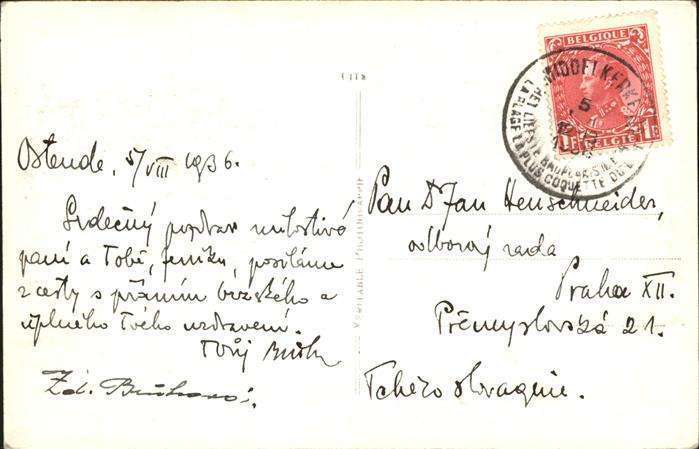 Ostende, 5/VIII 1936.
Srdečný pozdrav milostivé
paní a Tobě, Jeníku, posíláme
z cesty s přáním brzkého a
úplného Tvého uzdravení.
Tvůj
Zd.
VÉRITABLE PHOTOGRAPHIE
BELGIQUE
1F BELGIË 1F
MIDDELKERKE
5
HET LIEFSTE BADPLAATS
LA PLAGE LA PLUS COQUETTE DU
Pan Dr Jan Henschneider,
odborový rada
Praha XII.
Přemyslovská 21.
Tchécoslovaquie.